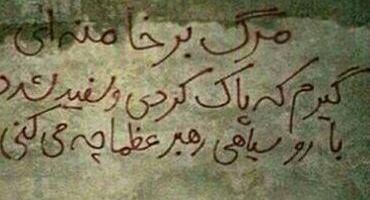 مرگ بر خامنه‌ای
گیرم که پاک کردی و سفید شد
با رو سیاهی رهبر عظما چه می کنی